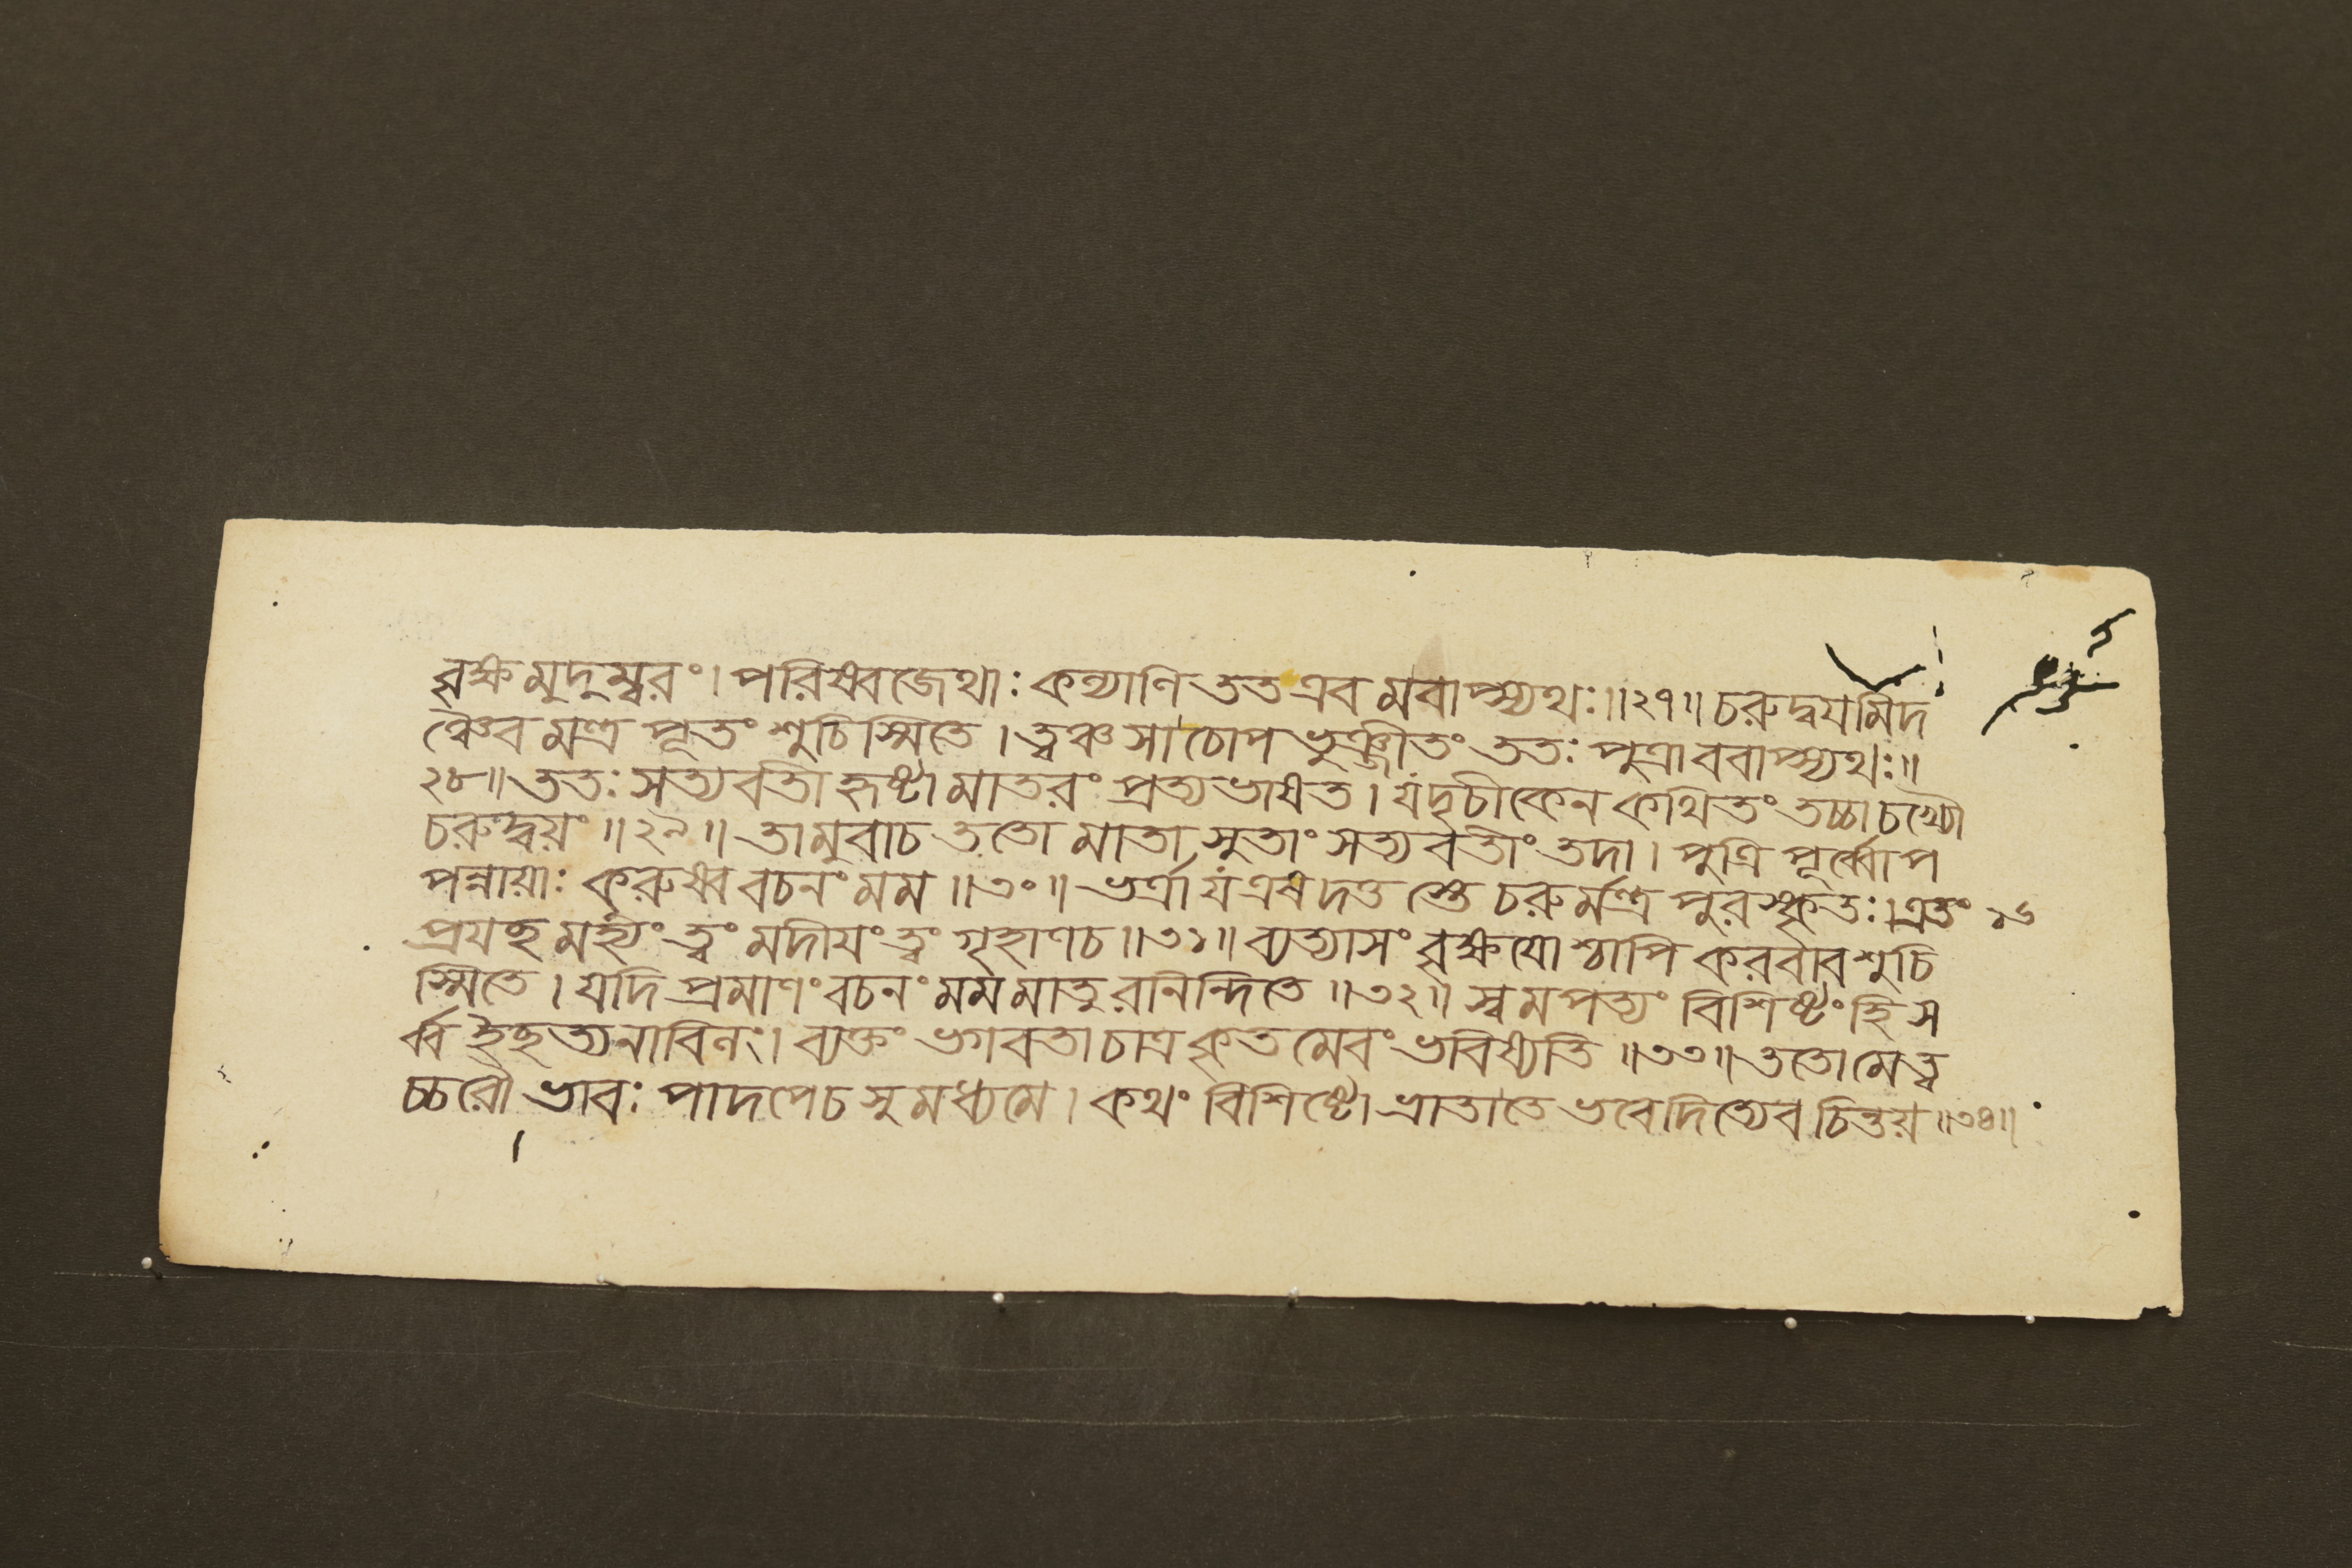 বৃক্ষমুদুম্বরং। পরিষ্বজেথাঃ কল্যাণি তত এব মবাপ্স্যথঃ॥২৭॥ চরুদ্বয়মিদ
ঞ্চৈব মন্ত্র পূতং শুচিস্মিতে। ত্বঞ্চ সা চোপ ভুঞ্জীতং ততঃ পুত্রাববাপ্স্যথঃ॥
২৮॥ ততঃ সত্যবতী হৃষ্টা মাতরং প্রত্যভাষত। যদৃচীকেন কথিতং তচ্চাচখ্যৌ
চরুদ্বয়ং॥২৯॥ তামুবাচ ততো মাতা সুতাং সত্যবতীং তদা। পুত্রি পূর্ব্বোপ
পন্নায়াঃ কুরুষ্ব বচনং মম॥৩০॥ ভর্ত্রা য এষ দত্ত স্তে চরুর্মন্ত্র পুরস্কৃতঃ। এতং ১৬
প্রযচ্ছ মহ্যং ত্বং মদীয়ং ত্বং গৃহাণচ॥৩১॥ ব্যত্যাসং বৃক্ষয়ো শ্চাপি করবাব শুচি
স্মিতে। যদি প্রমাণং বচনং মম মাতুরনিন্দিতে॥৩২॥ স্বমপত্যং বিশিষ্টং হি স
র্ব্ব ইচ্ছত্যনাবিনং। ব্যক্তং ভগবতা চাত্র কৃতমেবং ভবিষ্যতি॥৩৩॥ ততো মে ত্ব
চ্চরৌ ভাবঃ পাদপেচ সুমধ্যমে। কথং বিশিষ্টো ভ্রাতা তে ভবেদিত্যেব চিন্তয়॥৩৪॥